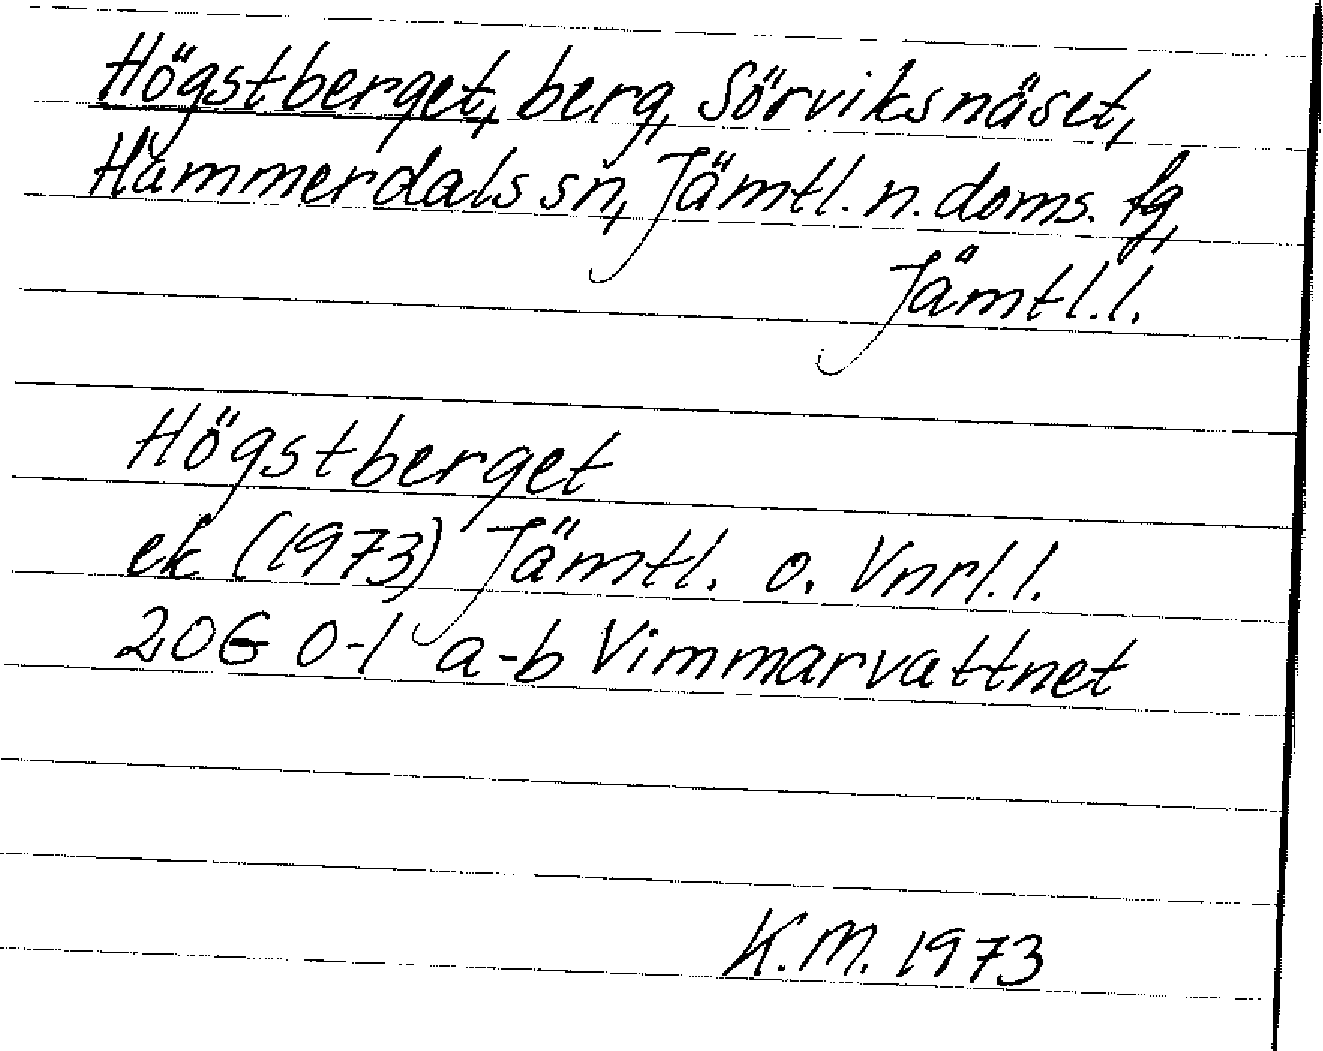 Högstberget, berg, Sörviksnäset,
Hammerdals sn, Jämtl. n. doms. fg,
Jämtl. l.
Högstberget
ek (1973) Jämtl. o. Vnrl. l.
20G 0-1 a-b Vimmarvattnet
K.M. 1973